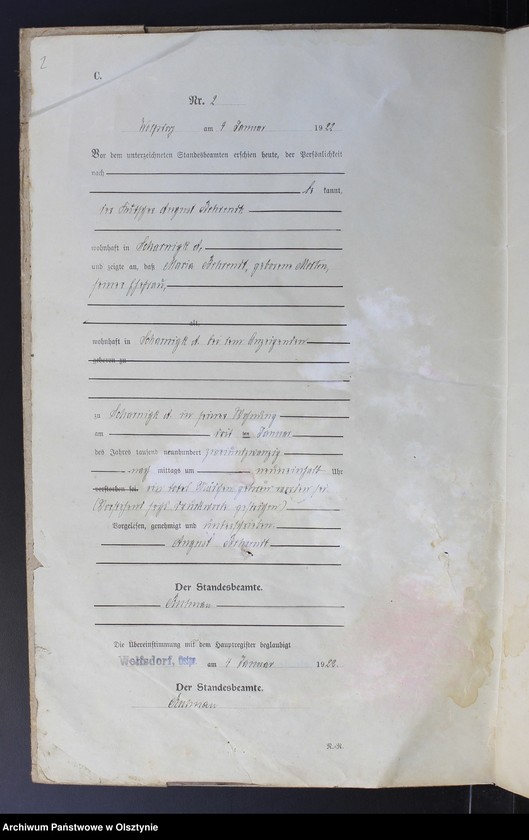 2
C.
Nr. 2
am 4 Januar 1922
Vor dem unterzeichneten Standesbeamten erschien heute, der Persönlichkeit
nach
kannt,
der August Behrendt
wohnhaft in Scharnigk
und zeigte an, daß Maria Behrendt, geborene
seiner Ehefrau,
alt,
wohnhaft in Scharnigk bei dem Anzeigenden
geboren zu
in Scharnigk in seiner Wohnung
am drei ten Januar
des Jahres tausend neunhundert zweiundzwanzig
nach mittags um neuneinhalb Uhr
verstorben sei. ein totes Mädchen geboren worden sei.
Vorgelesen, genehmigt und unterschrieben
August Behrendt
Der Standesbeamte.
Die Übereinstimmung mit dem Hauptregister beglaubigt
Wolfsdorf, Ostpr. am 4. Januar 1922
Der Standesbeamte.
R.-R.
Archiwum Państwowe w Olsztynie